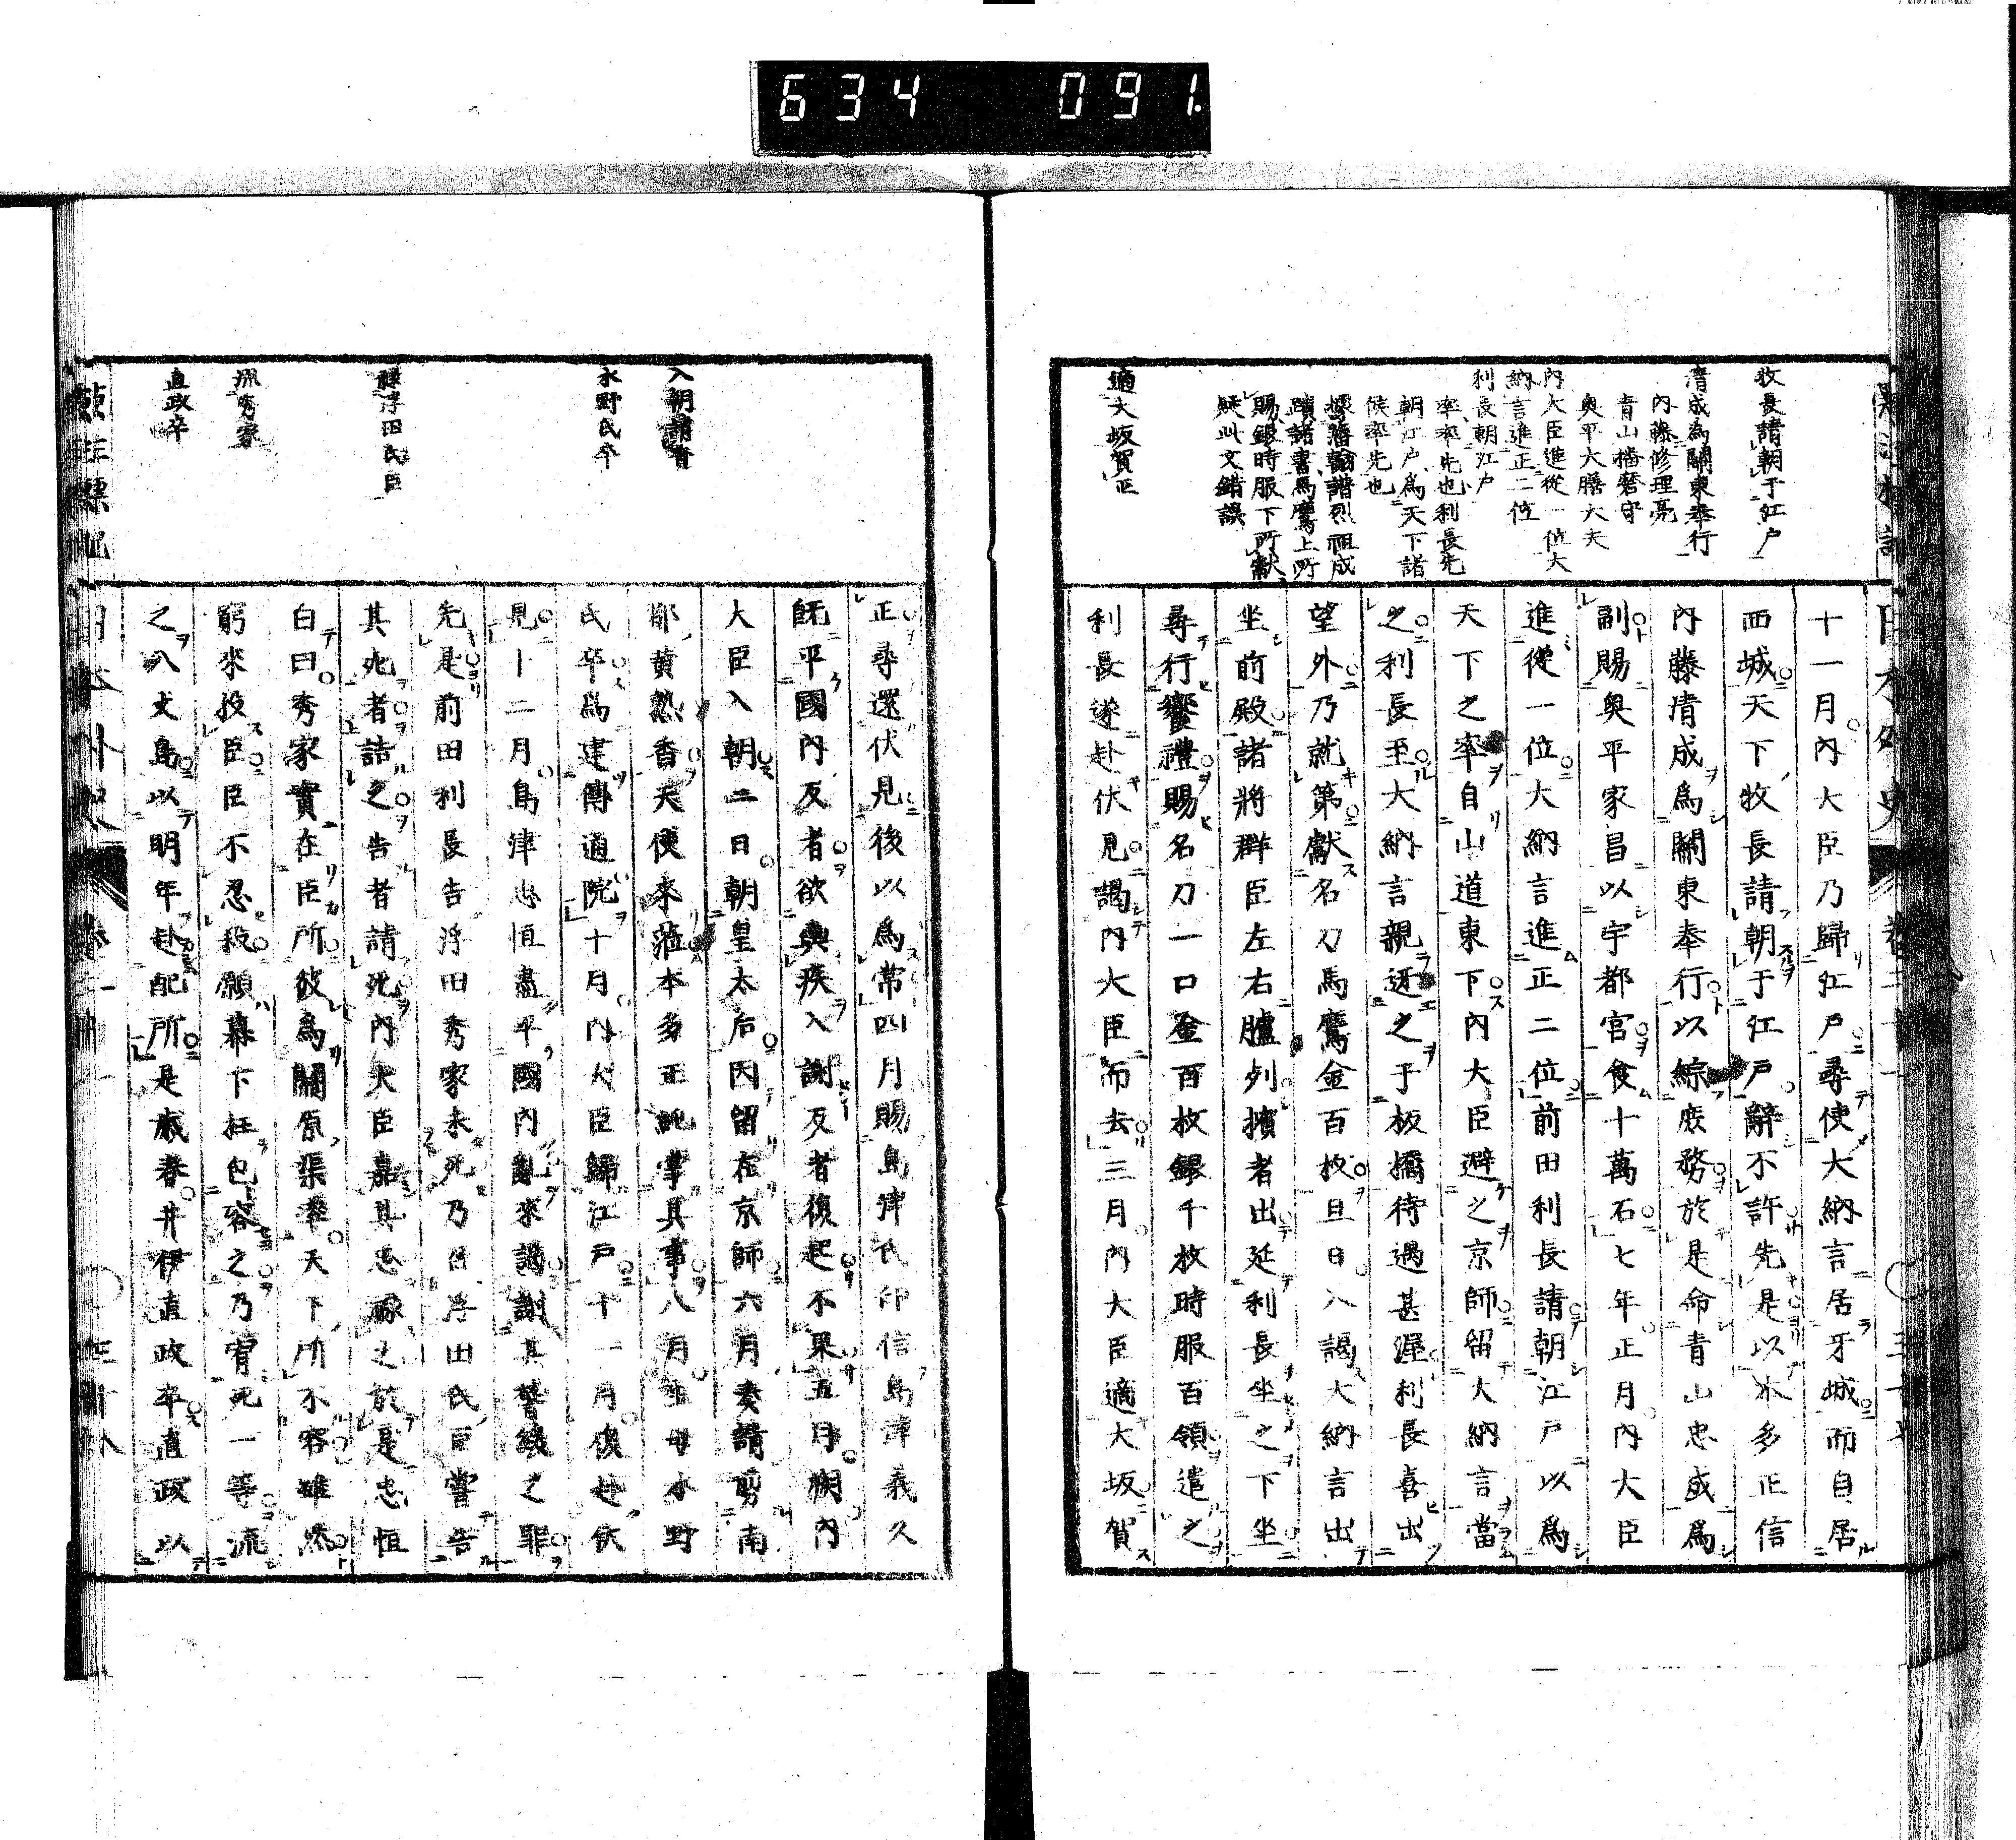 634 091.
牧長請朝于江戸
清成為關東奉行
内藤修理亮
青山播磨守
奥平大膳大夫
内大臣進從一位大
納言進正二位
利長朝江戸
率率先也利長先
朝江戸為天下諸
侯率先也
據藩翰譜烈祖成
蹟諸書馬鷹上所
賜銀時服下所獻
疑此文錯誤
適大坂賀正
十一月内大臣乃歸江戸尋使大納言居牙城而自居
西城天下牧長請朝于江戸辭不許先是以本多正信
内藤清成爲關東奉行以綜庶務於是命青山忠成爲
副賜奥平家昌以宇都宮食十萬石七年正月内大臣
進從一位大納言進正二位前田利長請朝江戸以爲
天下之率自山道東下内大臣避之京師留大納言當
之利長至大納言親迓之于板橋待遇甚渥利長喜出
望外乃就第獻名刀馬鷹金百枚旦日入謁大納言出
坐前殿諸將群臣左右臚列擯者出延利長坐之下坐
尋行饗禮賜名刀一口金百枚銀千枚時服百領遣之
利長遂赴伏見謁内大臣而去三月内大臣適大坂賀
入朝請香
水野氏卒
祿浮田氏臣
流秀家
直政卒
正尋還伏見後以爲常四月賜島津氏印信島津義久
既平國内反者欲輿疾入謝反者復起不果五月朔内
大臣入朝二日朝皇太后因留在京師六月奏請剪南
都黄熟香天使來蒞本多正純掌其事八月生母水野
氏卒爲建傳通院十月内大臣歸江戸十一月復赴伏
見十二月島津忠恒盡平國内亂來謁謝其誓緩之罪
先是前田利長告浮田秀家未死乃召浮田氏臣嘗告
其死者詰之告者請死内大臣嘉其忠祿之於是忠恒
白曰秀家實在臣所彼爲關原渠率天下所不容雖然
窮來投臣臣不忍殺願幕下枉包容之乃宥死一等流
之八丈島以明年赴配所是歳春井伊直政卒直政以